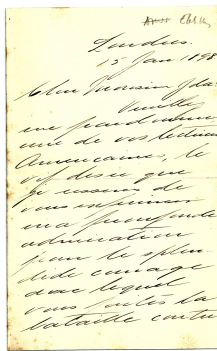 Londres.
15 Jan 1898
Cher Monsieur Zola
Veuillez
me pardonner
une de vos lectrices
Américaines, le
vif désir que
je ressens de
vous exprimer
ma profonde
admiration
pour le splen-
dide courage
avec lequel
vous faites la
bataille contre